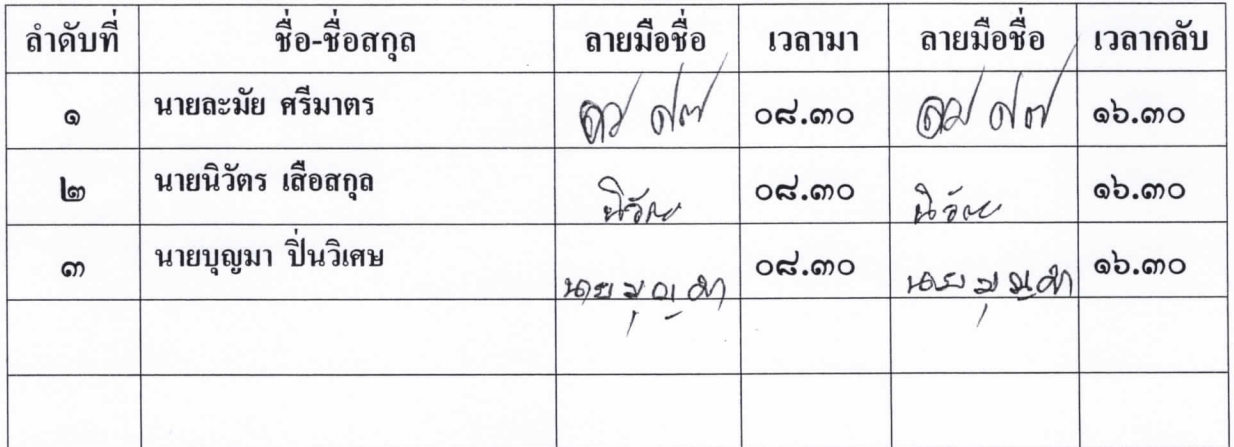 ลำดับที่ ชื่อ-ชื่อสกุล ลายมือชื่อ เวลามา ลายมือชื่อ เวลากลับ
๑ นายละมัย ศรีมาตร ๐๘.๓๐ ๑๖.๓๐
๒ นายนิวัตร เสือสกุล นิวัตร ๐๘.๓๐ นิวัตร ๑๖.๓๐
๓ นายบุญมา ปิ่นวิเศษ นายบุญมา ๐๘.๓๐ นายบุญมา ๑๖.๓๐